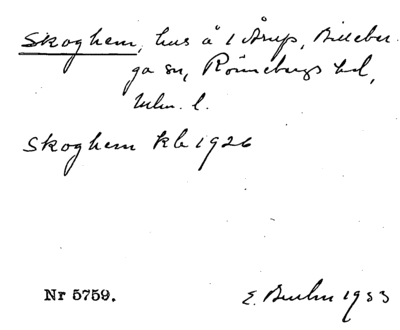 Skoghem, hus å 1 Årup, Billeber-
ga sn, Rönnebergs hd,
Mlm. l.
Skoghem kb 1926
Nr 5759.
E. 1953